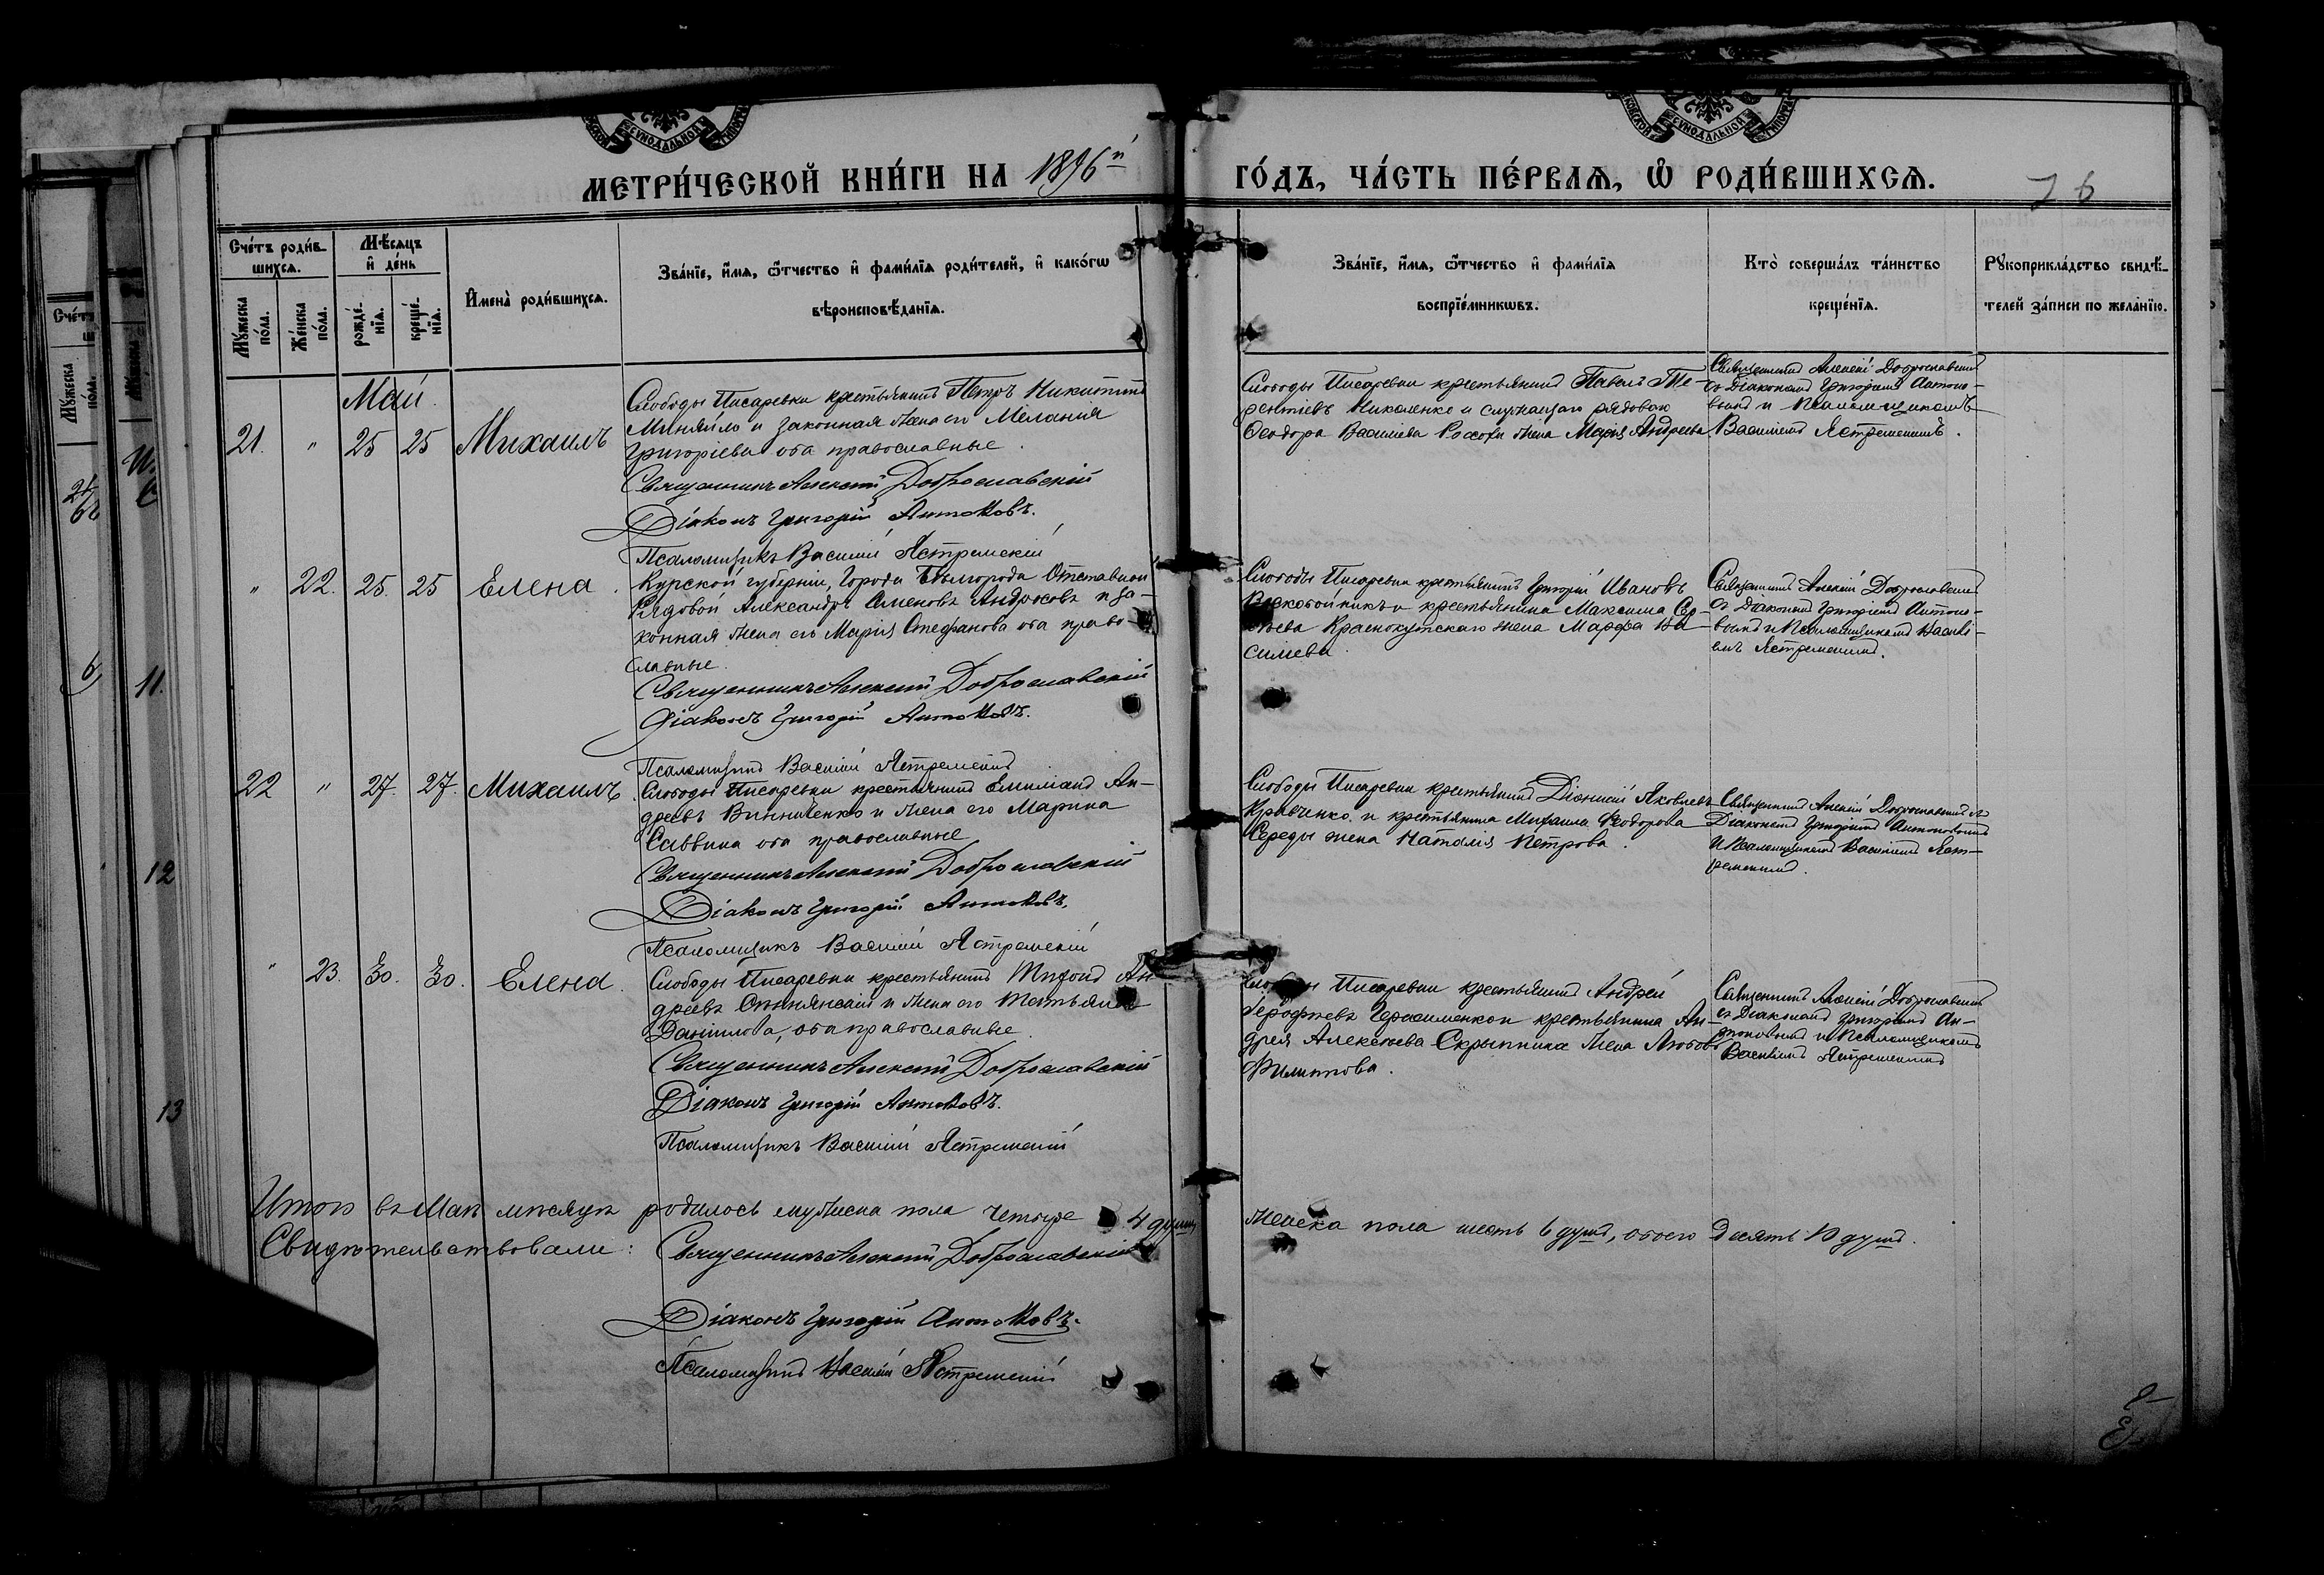 МЕТРИ́ЧЕСКОЙ КНИ́ГИ НА 1896й ГО́ДЪ, ЧА́СТЬ ПЕ́РВАѦ, Ѡ РОДИ́ВШИХСѦ.
Сче́тъ роди́в-
шихсѧ.
Мꙋ́жеска по́ла.
Же́нска по́ла.
Мѣ́сѧцъ и де́нь
рожде́-нїѧ.
креще́-нїѧ.
Имена̀ роди́вшихсѧ.
Зва́нїе, и́мѧ, ѻ́тчество и фами́лїѧ роди́телей, и како́гѡ
вѣроисповѣ́данїѧ.
Зва́нїе, и́мѧ, ѻ́тчество и фами́лїѧ
воспрїе́мникѡвъ.
Кто̀ соверша́лъ та́инство
креще́нїѧ.
Рꙋкоприкла́дство свидѣ́-
телей за́писи по жела́нїю.
Май
21. " 25 25 Михаилъ
Слободы Писаревки крестьянинъ Петръ Никитинъ
Миняйло и законная жена его Мелания
Григоріева оба православные.
Священникъ Алексій Доброславскій
Діаконъ Григорій Антоновъ.
Псаломщикъ Василій Ястремскій
Слободы Писаревки крестьянинъ Павелъ Те-
рентіевъ Николенко и служащаго рядовак
Ѳеодора Василіева Россохи жена Марія Андреева
Священникъ Алексій Доброславскій
съ Діакономъ Григоріемъ Антоно-
вымъ и Псаломщикомъ
Василіемъ Ястремскимъ.
" 22. 25. 25 Елена.
Курской губерніи, города Бѣлгорода Отставной
Рядовой Александръ Семеновъ Андрюсовъ и за-
конная жена его Марія Стефанова оба право-
славные.
Священникъ Алексій Доброславскій
Діаконъ Григорій Антоновъ.
Псаломщикъ Василій Ястремскій
Слободы Писаревки крестьянинъ Григорій Ивановъ
и крестьянина Максима
Краснокутскаго жена Марѳа Ва-
силиева.
Священникъ Алексій Доброславскій
съ Діакономъ Григоріемъ Антоно-
вымъ и Псаломщикомъ Василі-
емъ Ястремскимъ.
22 " 27. 27. Михаилъ.
Слободы Писаревки крестьянинъ Емиліанъ Ан-
дреевъ Винниченко и жена его Марина
Саввина оба православные
Священникъ Алексій Доброславскій
Діаконъ Григорій Антоновъ.
Псаломщикъ Василій Ястремскій
Слободы Писаревки крестьянинъ Діонисій Яковлевъ
Кравченко и крестьянина Михаила Ѳеодорова
Середы жена Наталія Петрова.
Священникъ Алексій Доброславскій съ
Діакономъ Григоріемъ Антоновымъ
и Псаломщикомъ Василіемъ Яст-
ремскимъ.
" 23. 30. 30. Елена.
Слободы Писаревки крестьянинъ Ан-
дреевъ и жена его Татьяна
Даниилова, оба православные
Священникъ Алексій Доброславскій
Діаконъ Григорій Антоновъ.
Псаломщикъ Василій Ястремскій
Слободы Писаревки крестьянинъ Андрей
Герасименко и крестьянина Ан-
дрея Алексѣева Скрыпника жена Любовь
Филиппова.
Священникъ Алексій Доброславскій
съ Діакономъ Григоріемъ Ан-
тоновымъ и Псаломщикомъ
Василіемъ Ястремскимъ
Итого въ Маѣ мѣсяцѣ родилось мужеска пола четыре 4 души
женска пола шесть 6 душъ, обоего десять 10 душъ.
Свидѣтельствовали: Священникъ Алексій Доброславскій
Діаконъ Григорій Антоновъ.
Псаломщикъ Василій Ястремскій
11.
12
13